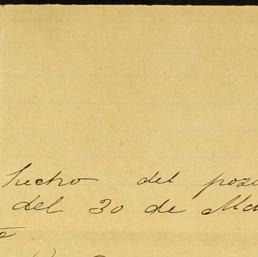 hecho del pose
del 30 de Ma